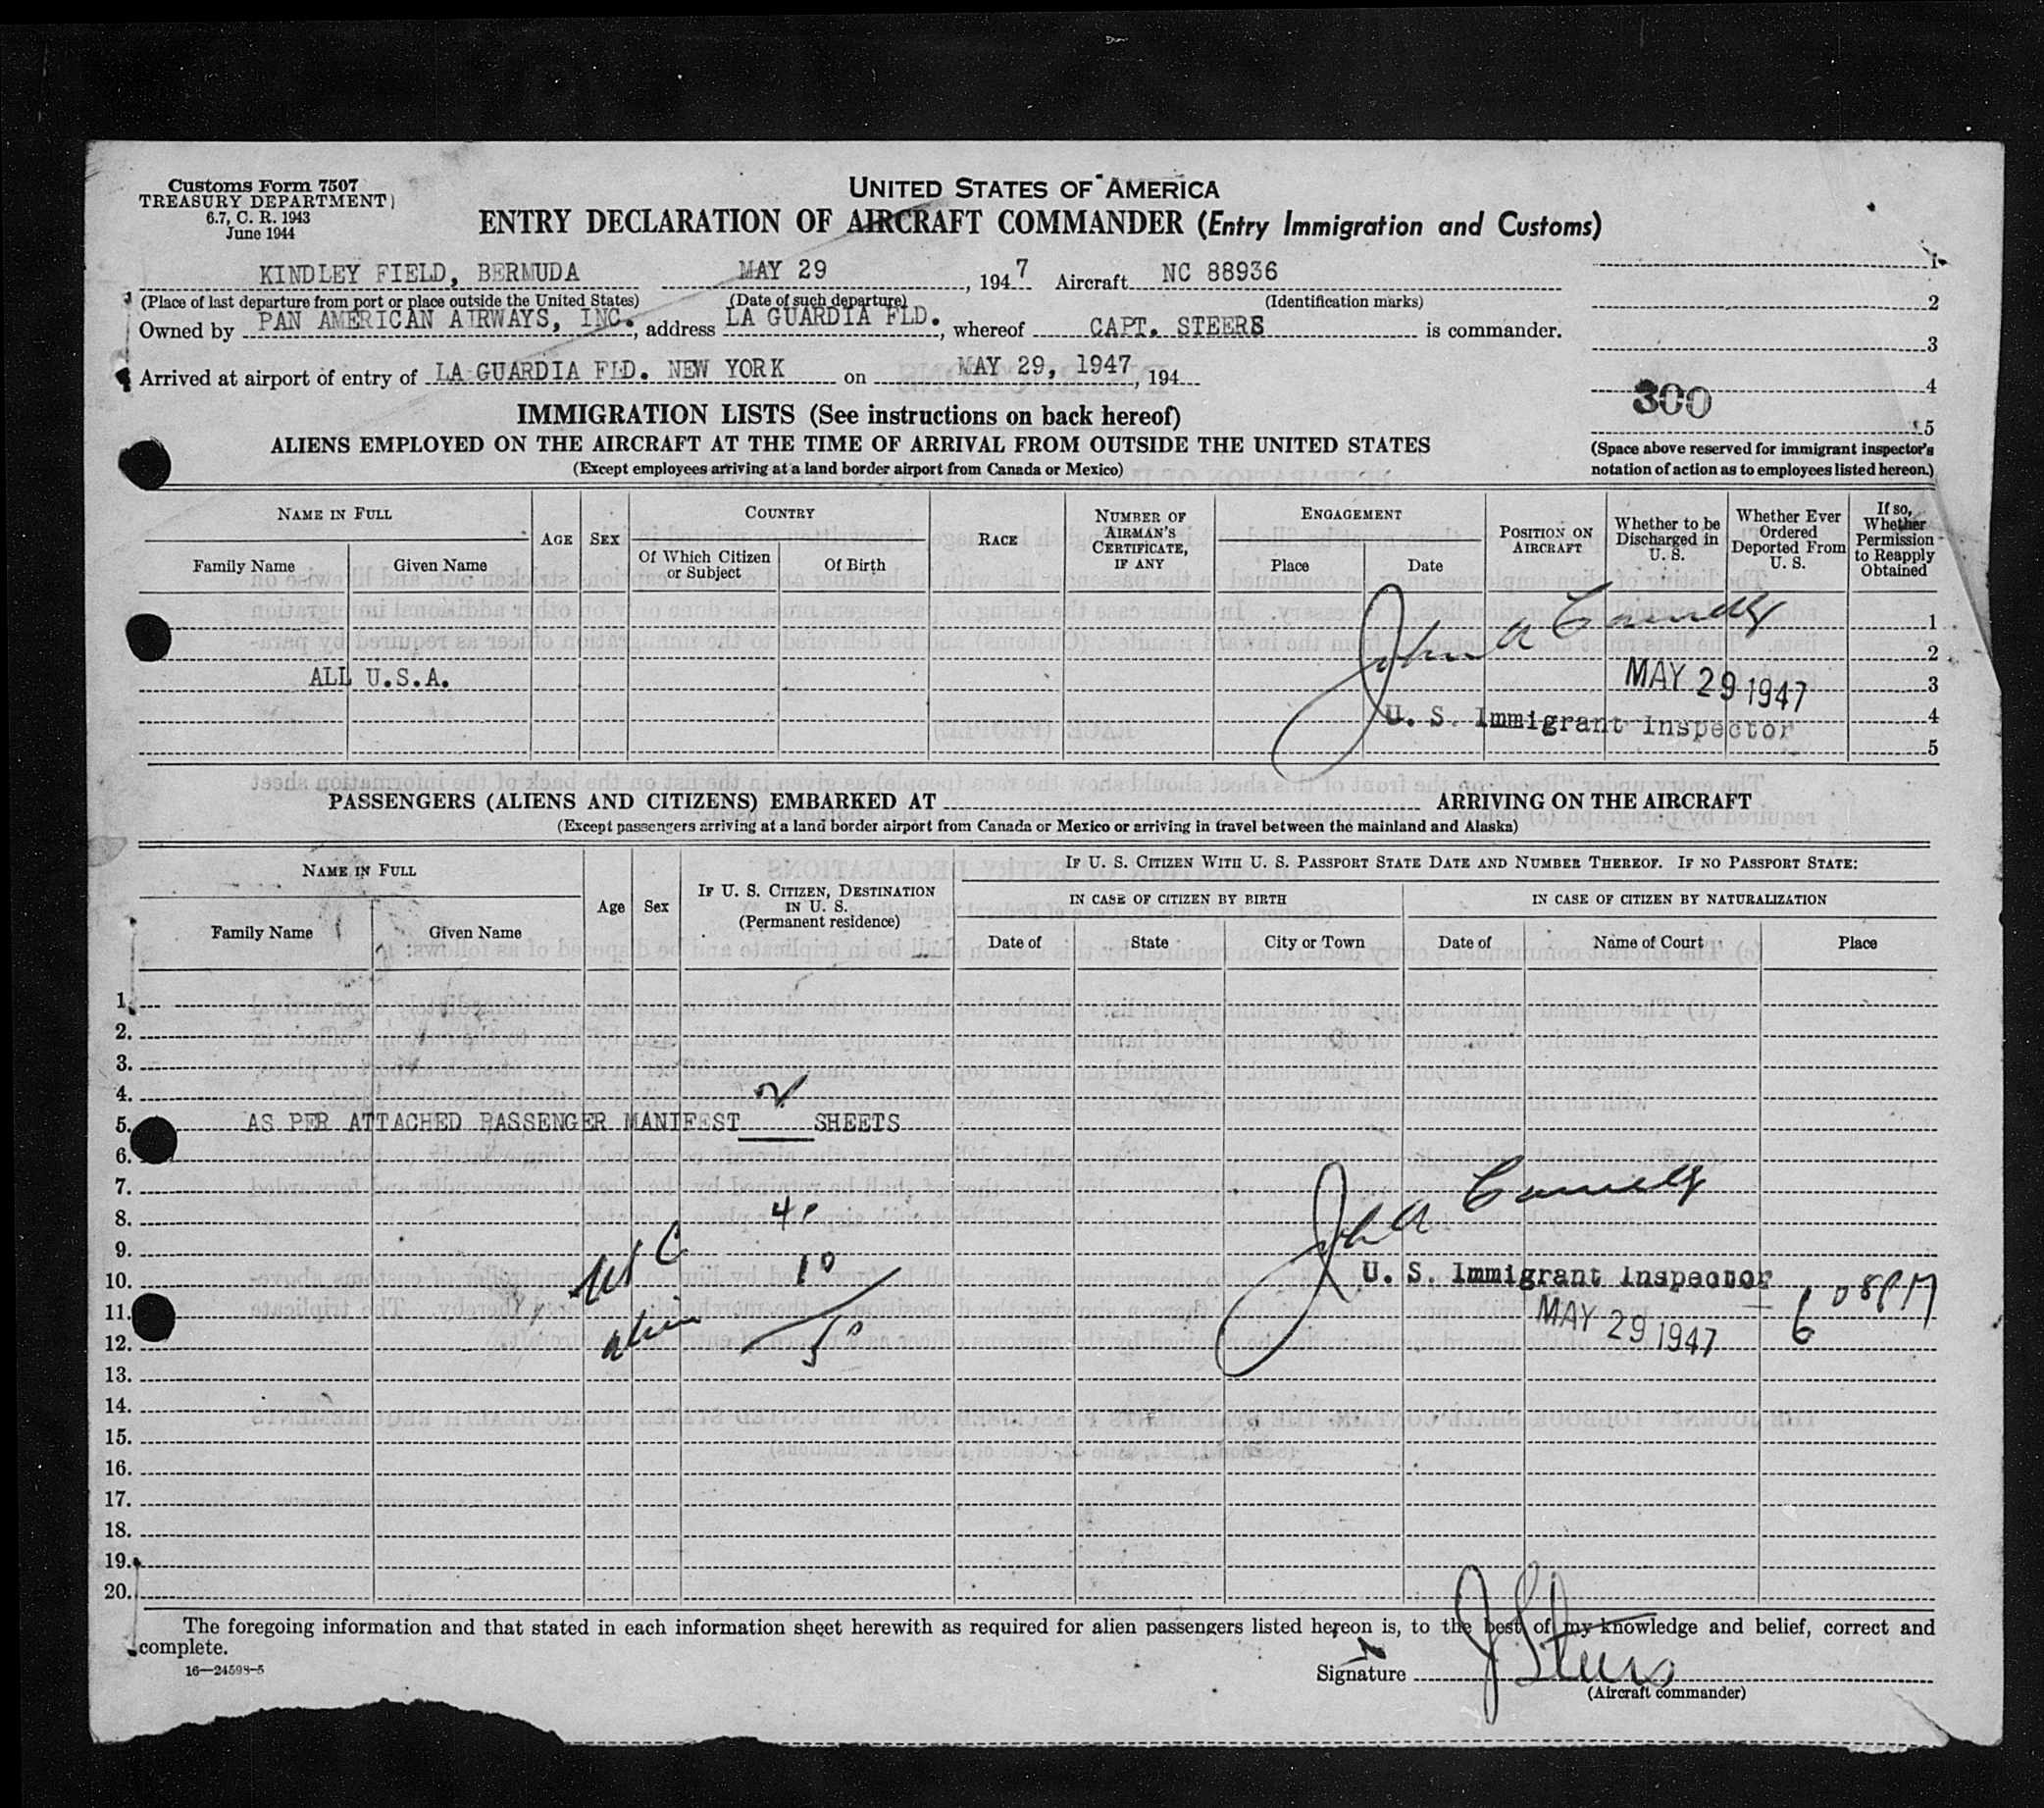 Customs Form 7507
TREASURY DEPARTMENT
6.7, C. R. 1943
June 1944
UNITED STATES OF AMERICA
ENTRY DECLARATION OF AIRCRAFT COMMANDER (Entry Immigration and Customs)
KINDLEY FIELD, BERMUDA MAY 29, 1947 Aircraft NC 88936
(Place of last departure from port or place outside the United States) (Date of such departure) (Identification marks)
Owned by PAN AMERICAN AIRWAYS, INC., address LA GUARDIA FLD., whereof CAPT. STEERS is commander.
Arrived at airport of entry of LA GUARDIA FLD. NEW YORK on MAY 29, 1947, 194
1
2
3
4
5
300
(Space above reserved for immigrant inspector's
notation of action as to employees listed hereon.)
IMMIGRATION LISTS (See instructions on back hereof)
ALIENS EMPLOYED ON THE AIRCRAFT AT THE TIME OF ARRIVAL FROM OUTSIDE THE UNITED STATES
(Except employees arriving at a land border airport from Canada or Mexico)
NAME IN FULL
Family Name
Given Name
AGE
SEX
COUNTRY
Of Which Citizen or Subject
Of Birth
RACE
NUMBER OF AIRMAN'S CERTIFICATE, IF ANY
ENGAGEMENT
Place
Date
POSITION ON AIRCRAFT
Whether to be Discharged in U. S.
Whether Ever Ordered Deported From U. S.
If so, Whether Permission to Reapply Obtained
1
2
ALL U.S.A. 3
4
5
John A
MAY 29 1947
U. S. Immigrant Inspector
PASSENGERS (ALIENS AND CITIZENS) EMBARKED AT ARRIVING ON THE AIRCRAFT
(Except passengers arriving at a land border airport from Canada or Mexico or arriving in travel between the mainland and Alaska)
NAME IN FULL
Family Name
Given Name
Age
Sex
IF U. S. CITIZEN, DESTINATION IN U. S.
(Permanent residence)
IF U. S. CITIZEN WITH U. S. PASSPORT STATE DATE AND NUMBER THEREOF. IF NO PASSPORT STATE:
IN CASE OF CITIZEN BY BIRTH
IN CASE OF CITIZEN BY NATURALIZATION
Date of
State
City or Town
Date of
Name of Court
Place
1.
2.
3.
4.
5. AS PER ATTACHED PASSENGER MANIFEST 2 SHEETS
6.
7.
8.
9.
10.
11.
12.
13.
14.
15.
16.
17.
18.
19.
20.
alien
U. S. Immigrant Inspector
MAY 29 1947
6 08 PM
The foregoing information and that stated in each information sheet herewith as required for alien passengers listed hereon is, to the best of my knowledge and belief, correct and
complete.
16—24598-5
Signature J Steers
(Aircraft commander)